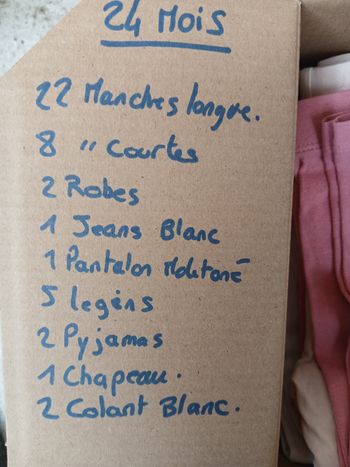 24 Mois
22 Manches longue.
8 " Courtes
2 Robes
1 Jeans Blanc
1 Pantalon Moltoné
5 legéns
2 Pyjamas
1 Chapeau.
2 Colant Blanc.